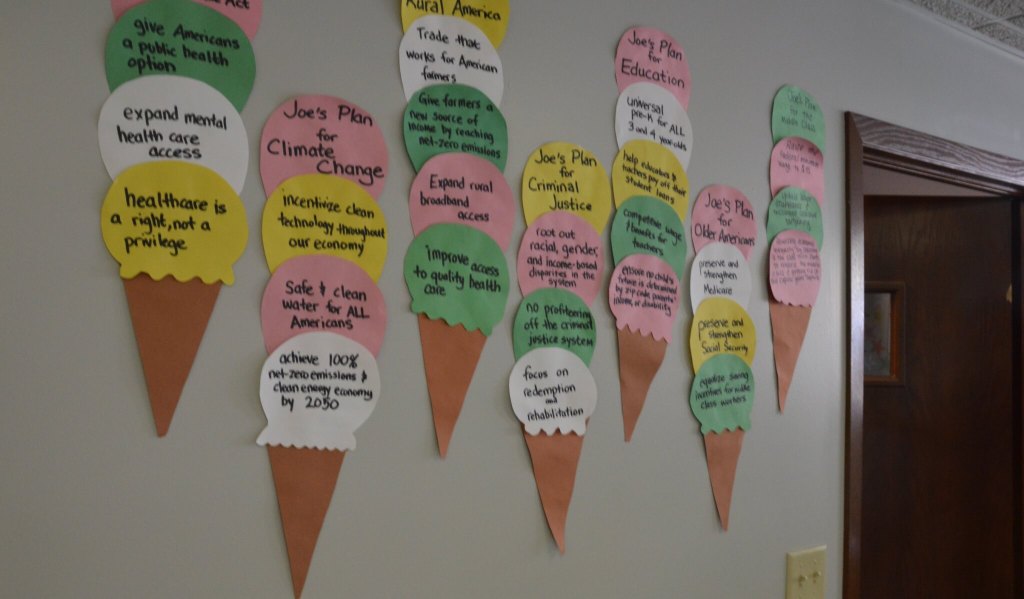 Act
give Americans
a public health
option
expand mental
health care
access
healthcare is
a right, not a
privilege
Joe's Plan
for
Climate
Change
incentivize clean
technology throughout
our economy
Safe & clean
water for ALL
Americans
achieve 100%
net-zero emissions &
clean energy economy
by 2050
Rural America
Trade that
works for American
farmers
Give farmers a
new source of
income by reaching
net-zero emissions
Expand rural
broadband
access
improve access
to quality health
care
Joe's Plan
for
Criminal
Justice
root out
racial, gender,
and income-based
disparities in the
system
no profiteering
off the criminal
justice system
focus on
redemption
and
rehabilitation
Joe's Plan
for
Education
universal
pre-K for ALL
3 and 4 year olds
help educators &
teachers pay off their
student loans
competitive wage
& benefits for
teachers
ensure no child's
future is determined
by zip code, parents'
income, or disability
Joe's Plan
for
Older Americans
preserve and
strengthen
Medicare
preserve and
strengthen
Social Security
equalize saving
incentives for middle
class workers
Joe's Plan
for the
Middle Class